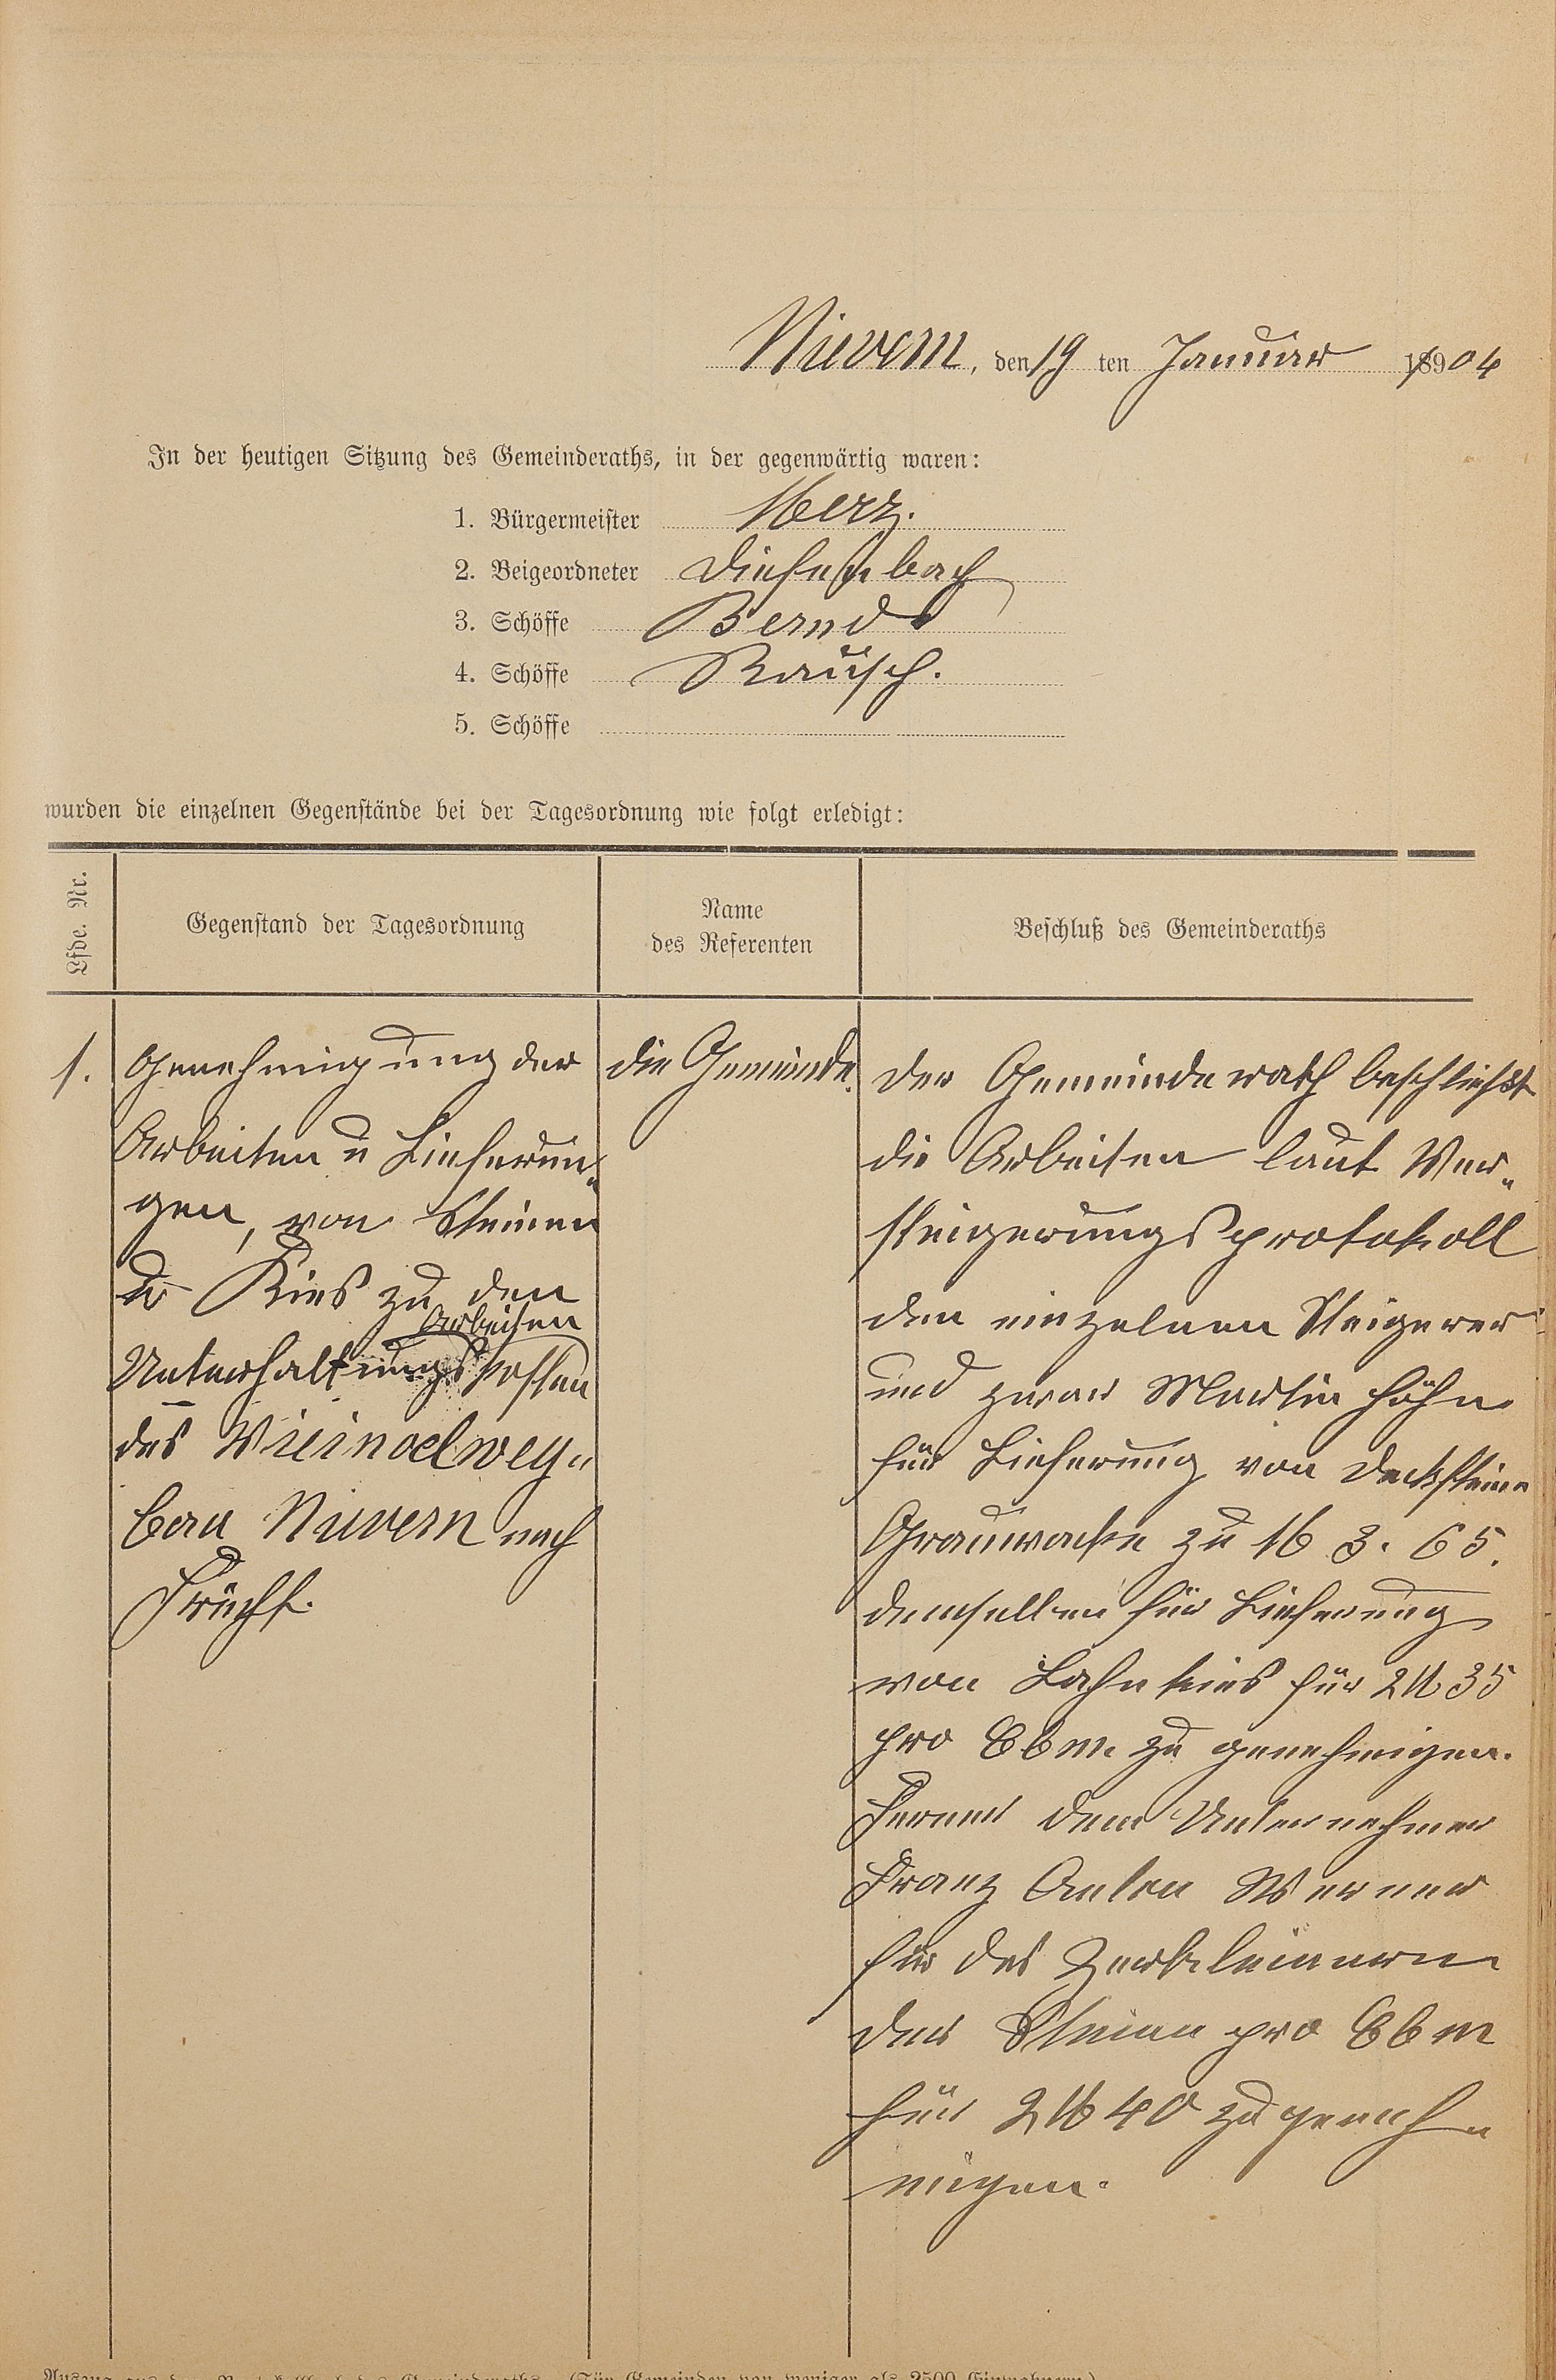 Nievern, den 19 ten Januar 1904
In der heutigen Sitzung des Gemeinderaths, in der gegenwärtig waren:
1. Bürgermeister Herz.
2. Beigeordneter Diefenbach
3. Schöffe Bernd
4. Schöffe Rausch.
5. Schöffe
wurden die einzelnen Gegenstände bei der Tagesordnung wie folgt erledigt:
Lfde. Nr.
Gegenstand der Tagesordnung
Name
des Referenten
Beschluß des Gemeinderaths
1.
Genehmigung der
Arbeiten u Lieferun„
gen, von Steinen
u Kies zu den
Arbeiten
Unterhaltungskosten
des Vicinalweg„
bau Nievern nach
Frücht.
die Gemeinde.
Der Gemeinderath beschließt
die Arbeiten laut Ver„
steigerungsprotokoll
den einzelnen Steigerer
und zwar Martin Höhn
für Lieferung von Decksteine
Grauwacke zu M 3. 65.
demselben für Lieferung
von Lahnkies für 2 M 35
pro Cbm zu genehmigen.
Ferner dem Unternehmer
Franz Anton Werner
für das Zerkleinern
der Steine pro Cbm
für 2 M 40 zu geneh„
migen.
Auszug aus dem Protokollbuch des Gemeinderaths. (Für Gemeinden von weniger als 2500 Einwohnern.)